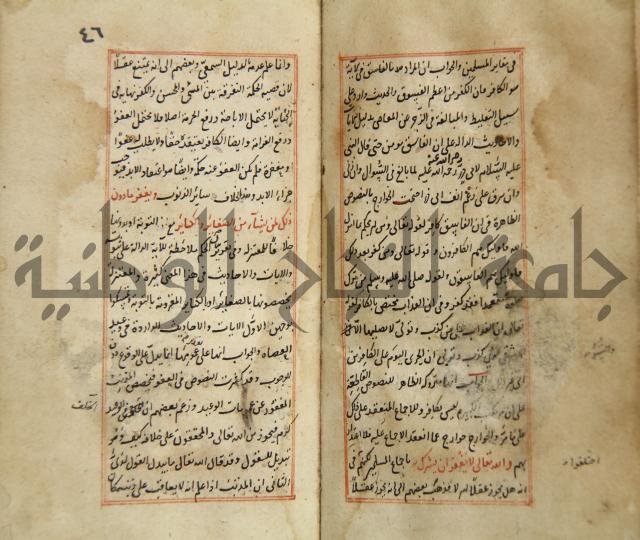 في مقابر المسلمين والجواب ان المراد من الفاسق في الآية
هو الكافر فان الكفر من اعظم الفسوق والحديث وارد على
سبيل التغليظ والمبالغة في الزجر عن المعاصي بدليل الآيات
والاحاديث الدالة على ان الفاسق مؤمن حتى قال النبي
عليه السلام لابي ذر رضي الله عنه لما بالغ في السؤال وان زنى
وان سرق على رغم انف ابي ذر احتجت الخوارج بالنصوص
الظاهرة في ان الفاسق كافر كقوله تعالى ومن لم يحكم بما انزل
الله فاولئك هم الكافرون وقوله تعالى ومن كفر بعد ذلك
فاولئك هم الفاسقون وكقوله صلى الله عليه وسلم من ترك
متعمدا فقد كفر وفي ان العذاب مختص بالكافر كقوله
تعالى ان العذاب على من كذب وتولى لا يصليها الا
الذي كذب وتولى ان الخزي اليوم على الكافرين
الى غير ذلك والجواب انها متروك الظاهر للنصوص القاطعة
على ان مرتكب ليس بكافر والاجماع المنعقد على ذلك
على ما مر والخوارج خوارج عما انعقد الاجماع عليه فلا اعتداد
بهم والله تعالى لا يغفر ان يشرك به باجماع المسلمين لكنهم في
انه هل يجوز عقلا ام لا فذهب بعضهم الى انه يجوز عقلا
والسوء
اختلفوا
٤٦
وانما علم عدمه الدليل السمعي وبعضهم الى انه يمتنع عقلا
لان قضية الحكمة التفرقة بين المسيء والمحسن والكفر نهاية في
الجناية لا يحتمل الاباحة ورفع الحرمة اصلا فلا يحتمل العفو
ورفع الغرامة وايضا الكافر يعتقده حقا ولا يطلب له عفوا
ومغفرة فلم يكن العفو عنه حكمة وايضا هو اعتقاد الابد فيوجب
جزاء الابد وهذا بخلاف سائر الذنوب ويغفر ما دون
ذلك لمن يشاء من الصغائر والكبائر مع التوبة او بدونها
خلافا للمعتزلة وفي تقرير الحكم ملاحظة للآية الدالة على ثبوته
والآيات والاحاديث في هذا المعنى كثيرة والمعتزلة
يخصصونها بالصغائر او الكبائر المقرونة بالتوبة وتمسكوا
بوجهين الاول الآيات والاحاديث الواردة في وعيد
العصاة والجواب انها على عمومها انما يدل على الوقوع دون
الوجوب وقد كثرت النصوص في العفو فيخصص المذنب
المغفور عن عمومات الوعيد وزعم بعضهم ان الخلف في الوعيد
كرم فيجوز من الله تعالى والمحققون على خلافه كيف وهو
تبديل للقول وقد قال الله تعالى ما يبدل القول لدي
الثاني ان المذنب اذا علم انه لا يعاقب على ذنبه كان
الخلف
جامعة النجاح الوطنية